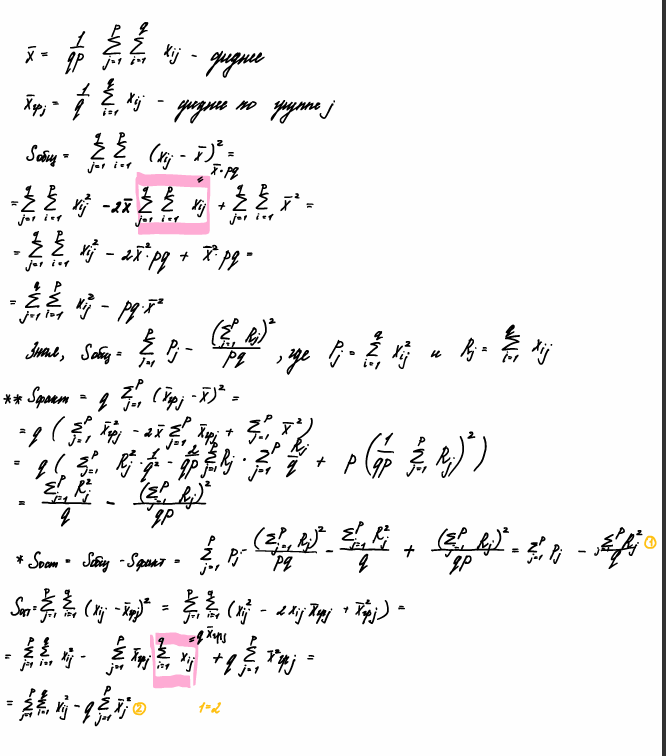 x̄ = 1/(qp) Σ_{j=1}^{p} Σ_{i=1}^{q} x_{ij} - среднее
x̄_{грj} = 1/q Σ_{i=1}^{q} x_{ij} - среднее по группе j
S_{общ} = Σ_{j=1}^{q} Σ_{i=1}^{p} (x_{ij} - x̄)² =
= x̄·pq
= Σ_{j=1}^{q} Σ_{i=1}^{p} x_{ij}² - 2x̄ Σ_{j=1}^{q} Σ_{i=1}^{p} x_{ij} + Σ_{j=1}^{q} Σ_{i=1}^{p} x̄² =
= Σ_{j=1}^{q} Σ_{i=1}^{p} x_{ij}² - 2x̄²·pq + x̄²·pq =
= Σ_{j=1}^{q} Σ_{i=1}^{p} x_{ij}² - pq·x̄²
S_{общ} = Σ_{j=1}^{p} P_j - (Σ_{j=1}^{p} R_j)²/(pq), где P_j = Σ_{i=1}^{q} x_{ij}² и R_j = Σ_{i=1}^{q} x_{ij}
** S_{факт} = q Σ_{j=1}^{p} (x̄_{грj} - x̄)² =
= q (Σ_{j=1}^{p} x̄²_{грj} - 2x̄ Σ_{j=1}^{p} x̄_{грj} + Σ_{j=1}^{p} x̄²)
= q (Σ_{j=1}^{p} R_j²·1/q² - 2/(qp) Σ_{j=1}^{p} R_j · Σ_{j=1}^{p} R_j/q + p (1/(qp) Σ_{j=1}^{p} R_j)²)
= Σ_{j=1}^{p} R_j²/q - (Σ_{j=1}^{p} R_j)²/(qp)
* S_{ост} = S_{общ} - S_{факт} = Σ_{j=1}^{p} P_j - (Σ_{j=1}^{p} R_j)²/(pq) - Σ_{j=1}^{p} R_j²/q + (Σ_{j=1}^{p} R_j)²/(qp) = Σ_{j=1}^{p} P_j - Σ_{j=1}^{p} R_j²/q ①
S_{ост} = Σ_{j=1}^{p} Σ_{i=1}^{q} (x_{ij} - x̄_{грj})² = Σ_{j=1}^{p} Σ_{i=1}^{q} (x_{ij}² - 2x_{ij} x̄_{грj} + x̄²_{грj}) =
= q x̄_{грj}
= Σ_{j=1}^{p} Σ_{i=1}^{q} x_{ij}² - Σ_{j=1}^{p} x̄_{грj} Σ_{i=1}^{q} x_{ij} + q Σ_{j=1}^{p} x̄²_{грj} =
= Σ_{j=1}^{p} Σ_{i=1}^{q} x_{ij}² - q Σ_{j=1}^{p} x̄_j² ② 1=2